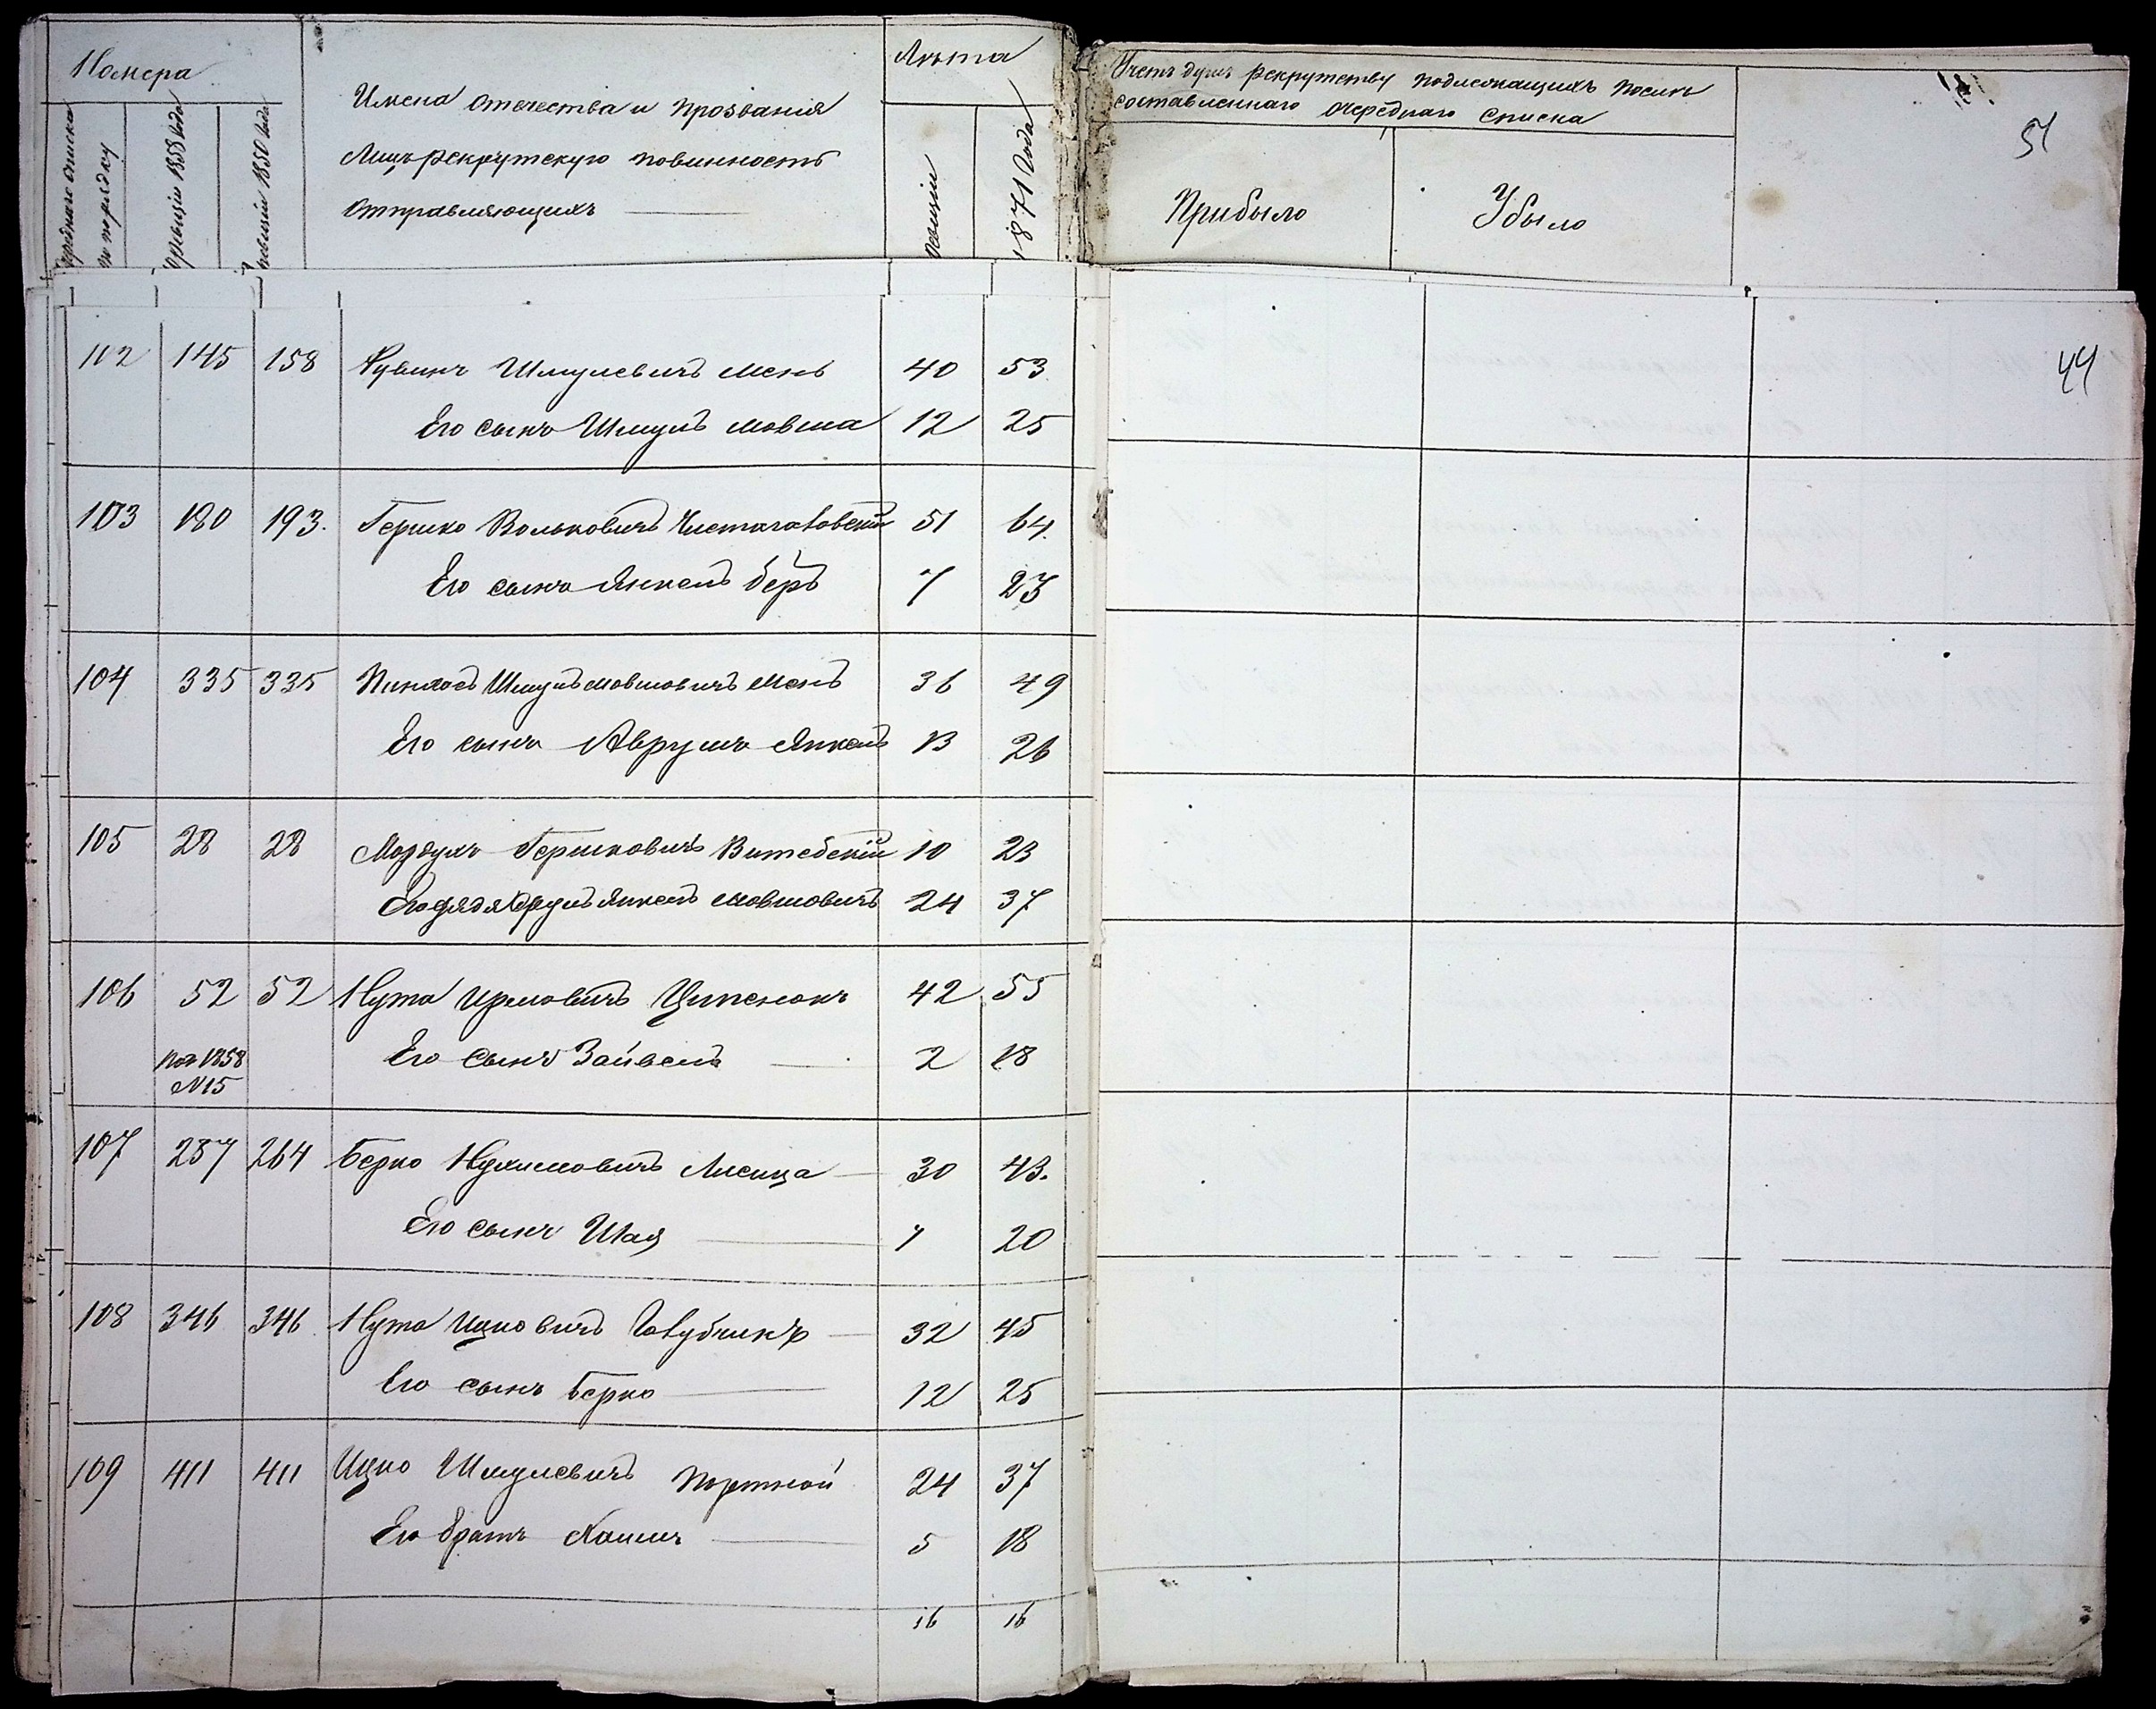 Номера
Лѣта
Учетъ душъ рекрутству подлежащихъ послѣ
составленнаго очереднаго списка
51
очереднаго списка
по порядку
ревизіи 1858 года
ревизіи 1850 года
Имена отечества и прозванія
Лицъ рекрутскую повинность
отправляющихъ
ревизіи
1871 года
Прибыло
Убыло
44
102 145 158 Рувинъ Шмулевичъ Мень 40 53
Его сынъ Шмуль Мовша 12 25
103 180 193. Гершко Вольковичъ 51 64
Его сынъ Янкель Беръ 7 23
104 335 335 Пинхосъ Шмуль Мовшовичъ Мень 36 49
Его сынъ Аврумъ Янкель 13 26
105 28 28 Мордухъ Гершковичъ Витебскій 10 23
Его дядя Янкель Мовшовичъ 24 37
106 52 52 Нута Ирмовичъ Ципенюкъ 42 55
по 1858
№ 15
Его сынъ Зайвель 2 18
107 257 264 Берко Нухимовичъ Лисица 30 43.
Его сынъ Шая 7 20
108 346 346 Нута Ицковичъ Голубчикъ 32 45
Его сынъ Берко 12 25
109 411 411 Ицко Шмулевичъ Портной 24 37
Его братъ Хаимъ 5 18
16 16